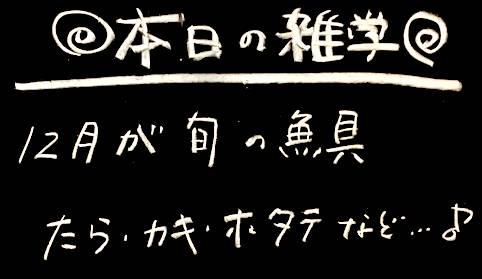 ◎本日の雑学◎
12月が旬の魚具
たら・カキ・ホタテなど…♪